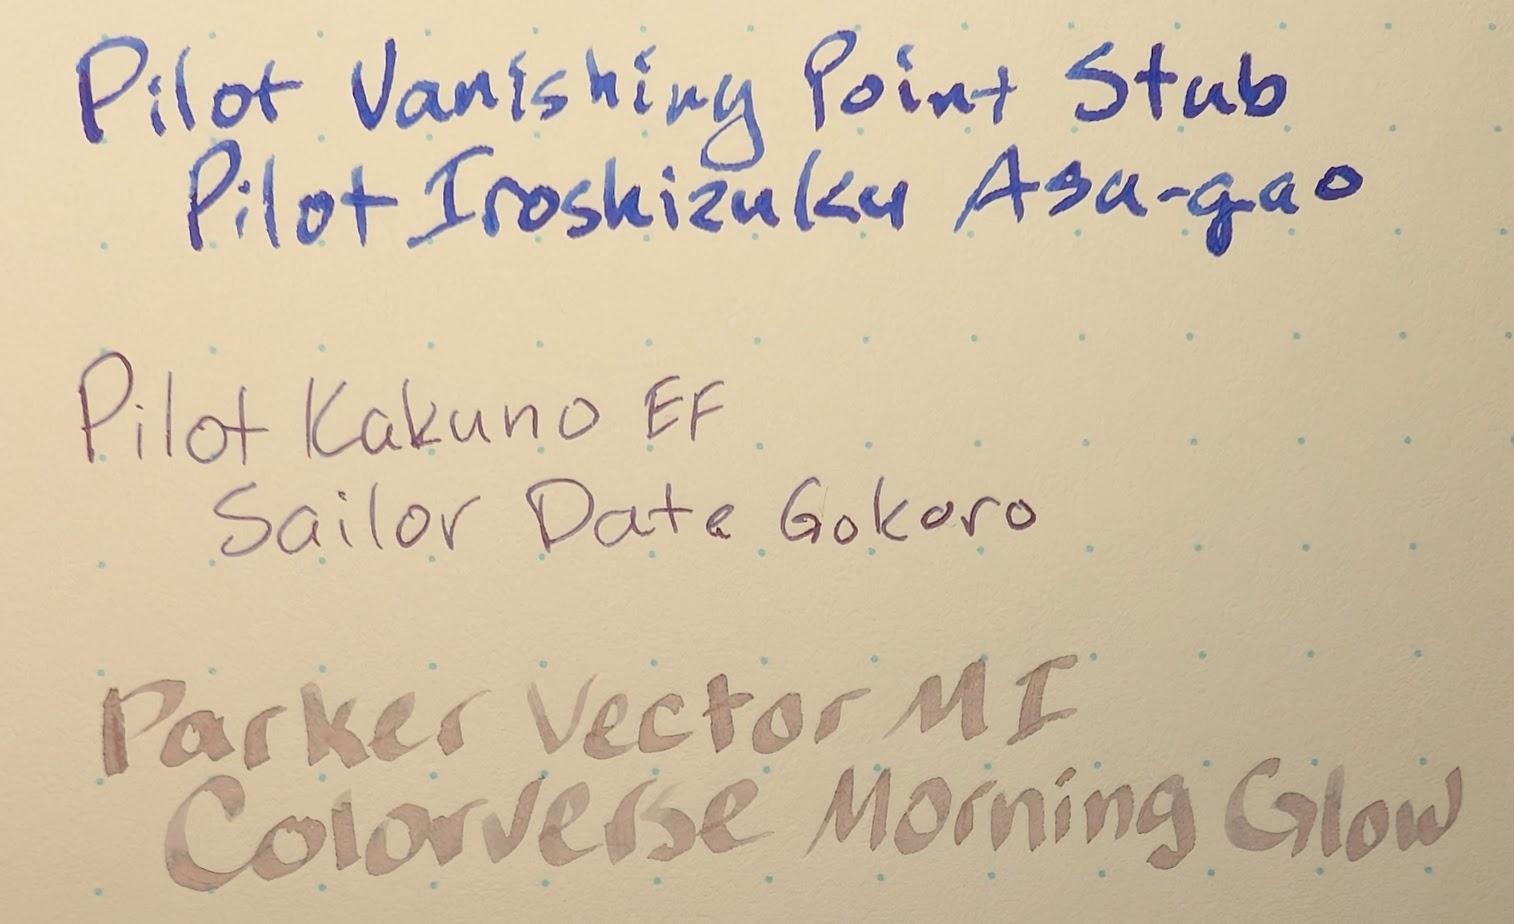 Pilot Vanishing Point Stub
Pilot Iroshizuku Asa-gao
Pilot Kakuno EF
Sailor Date Gokoro
Parker Vector MI
Colorverse Morning Glow